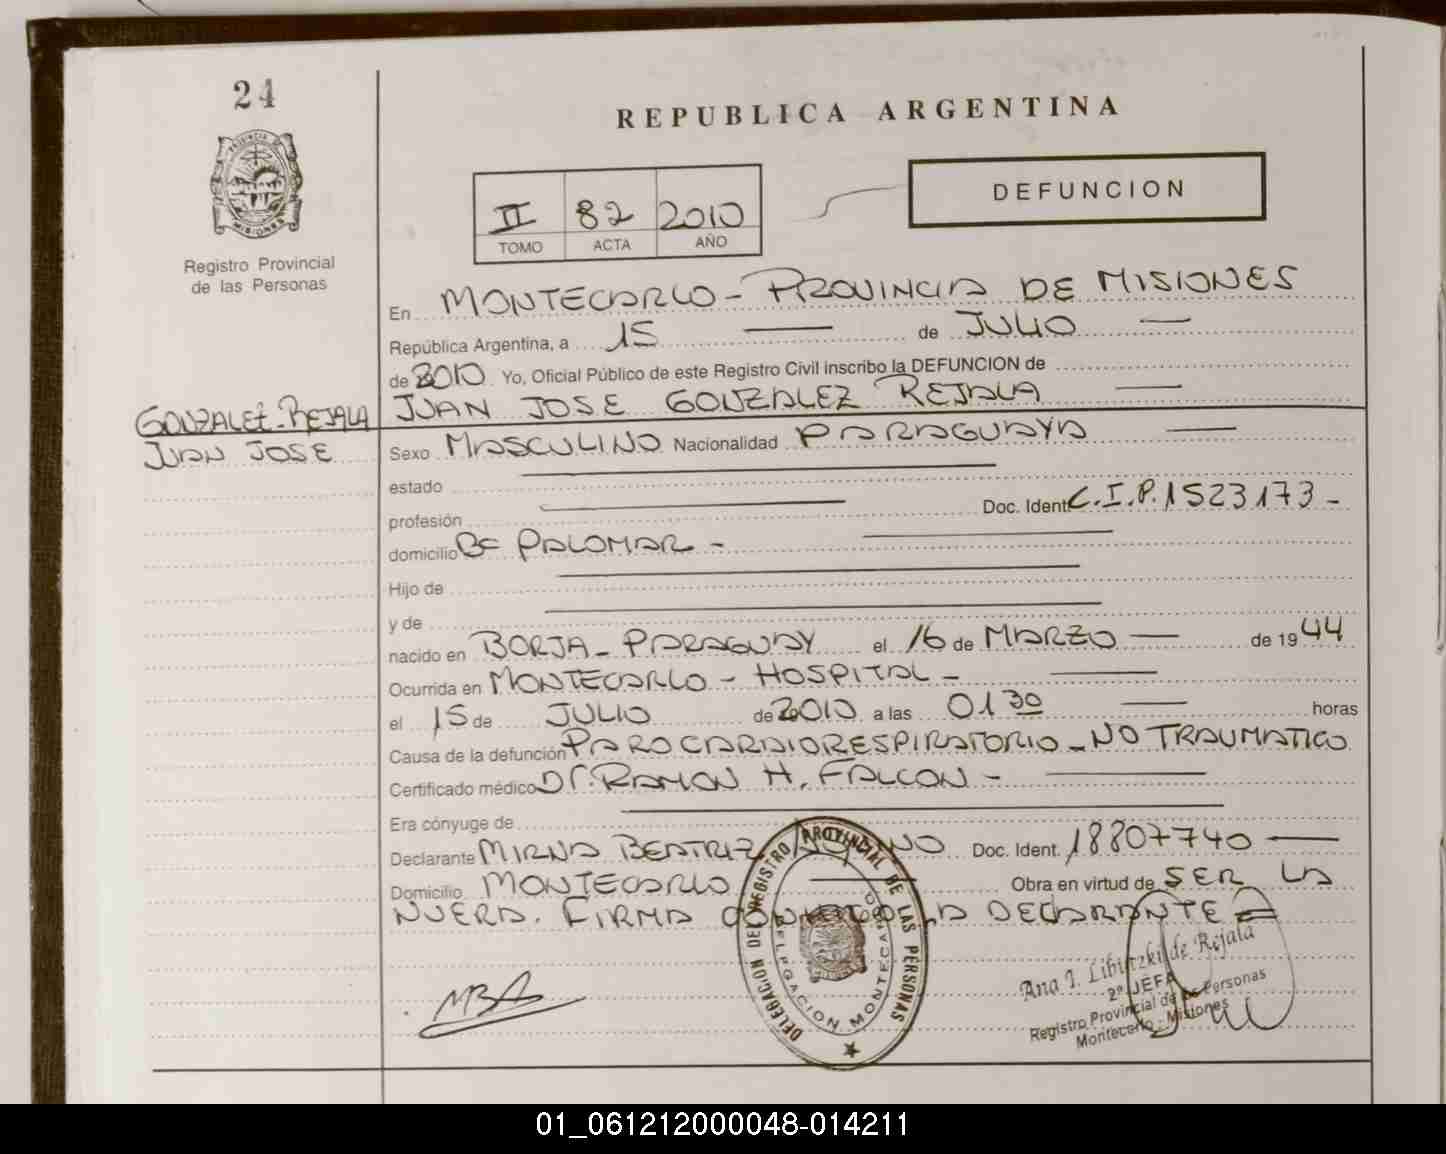 24
PROVINCIA DE
MISIONES
Registro Provincial
de las Personas
REPUBLICA ARGENTINA
II 82 2010
TOMO ACTA AÑO
DEFUNCION
En MONTECARLO - PROVINCIA DE MISIONES
República Argentina, a 15 de JULIO
de 2010 Yo, Oficial Público de este Registro Civil inscribo la DEFUNCION de
JUAN JOSE GONZALEZ REJALA
GONZALEZ-REJALA
JUAN JOSE
Sexo MASCULINO Nacionalidad PARAGUAYA
estado
profesión Doc. Ident. C.I.P. 1523173 -
domicilio Bº PALOMAR -
Hijo de
y de
nacido en BORJA - PARAGUAY el 16 de MARZO de 1944
Ocurrida en MONTECARLO - HOSPITAL -
el 15 de JULIO de 2010 a las 01 30 horas
Causa de la defunción PARO CARDIORESPIRATORIO - NO TRAUMATICO
Certificado médico Dr. RAMON H. FALCON -
Era cónyuge de
Declarante MIRNA BEATRIZ Doc. Ident. 18807740
Domicilio MONTECARLO Obra en virtud de SER LA
NUERA. FIRMA CONMIGO LA DECLARANTE
DELEGACION DEL REGISTRO PROVINCIAL DE LAS PERSONAS
DELEGACION MONTECARLO
MBA
Ana I. de Rejala
2º JEFA
Registro Provincial de las Personas
Montecarlo - Misiones
01_061212000048-014211